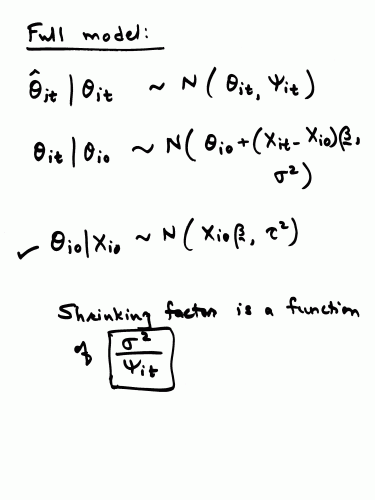 Full model:
θ̂it | θit ~ N ( θit, Ψit )
θit | θio ~ N ( θio + (Xit - Xio)β,
σ²)
✓ θio | Xio ~ N ( Xio β, τ² )
Shrinking factor is a function
of σ²/Ψit